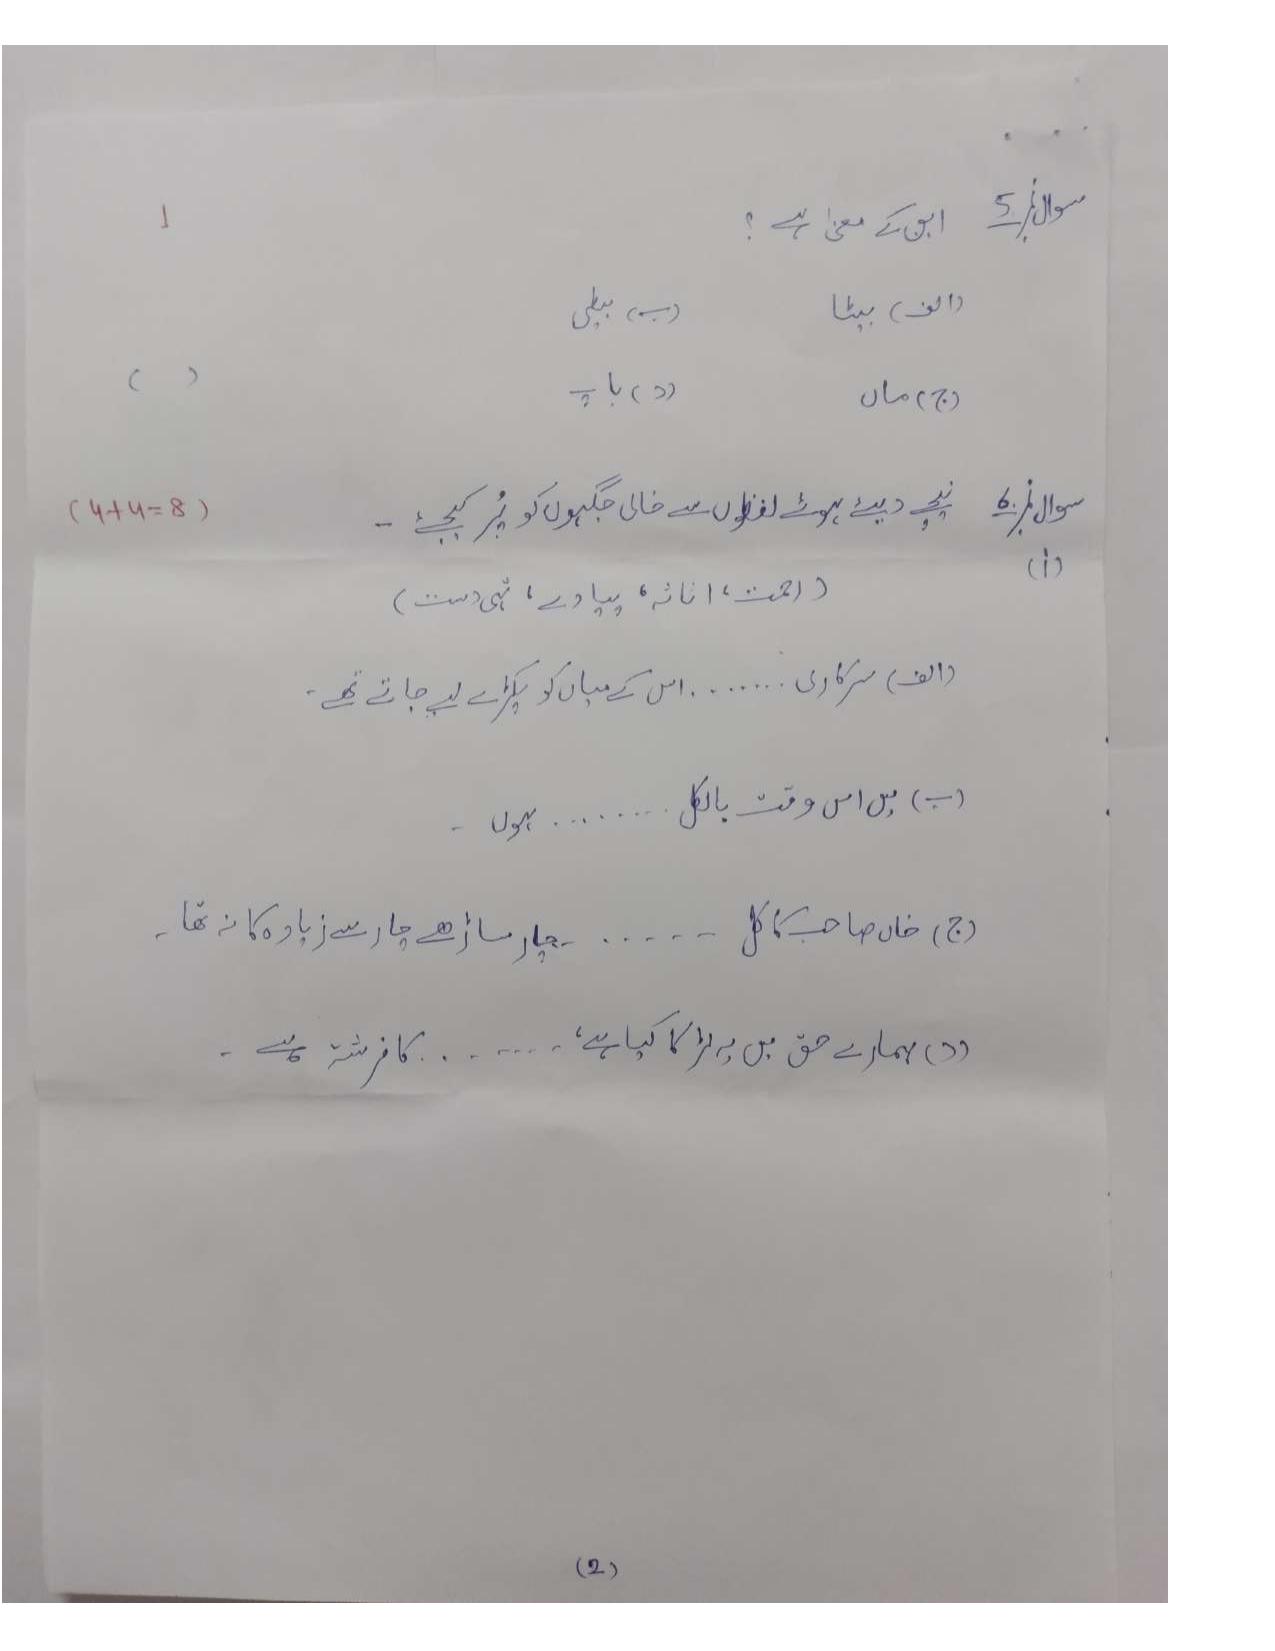 سوال نمبر 5 ابن کے معنیٰ ہے ؟ 1
(الف) بیٹا (ب) بیٹی
(ج) ماں (د) باپ ( )
سوال نمبر 6 نیچے دیئے ہوئے لفظوں سے خالی جگہوں کو پُر کیجئے - (4+4=8)
(i)
(رحمت، اثاثہ، پیادے، تہی دست)
(الف) سرکاری ........ اس کے میاں کو پکڑے لیے جاتے تھے -
(ب) میں اس وقت بالکل ........ ہوں -
(ج) خاں صاحب کا کل ........ چار ساڑھے چار سے زیادہ کا نہ تھا -
(د) ہمارے حق میں یہ لڑکا کیا ہے، ........ کا فرشتہ ہے -
(2)